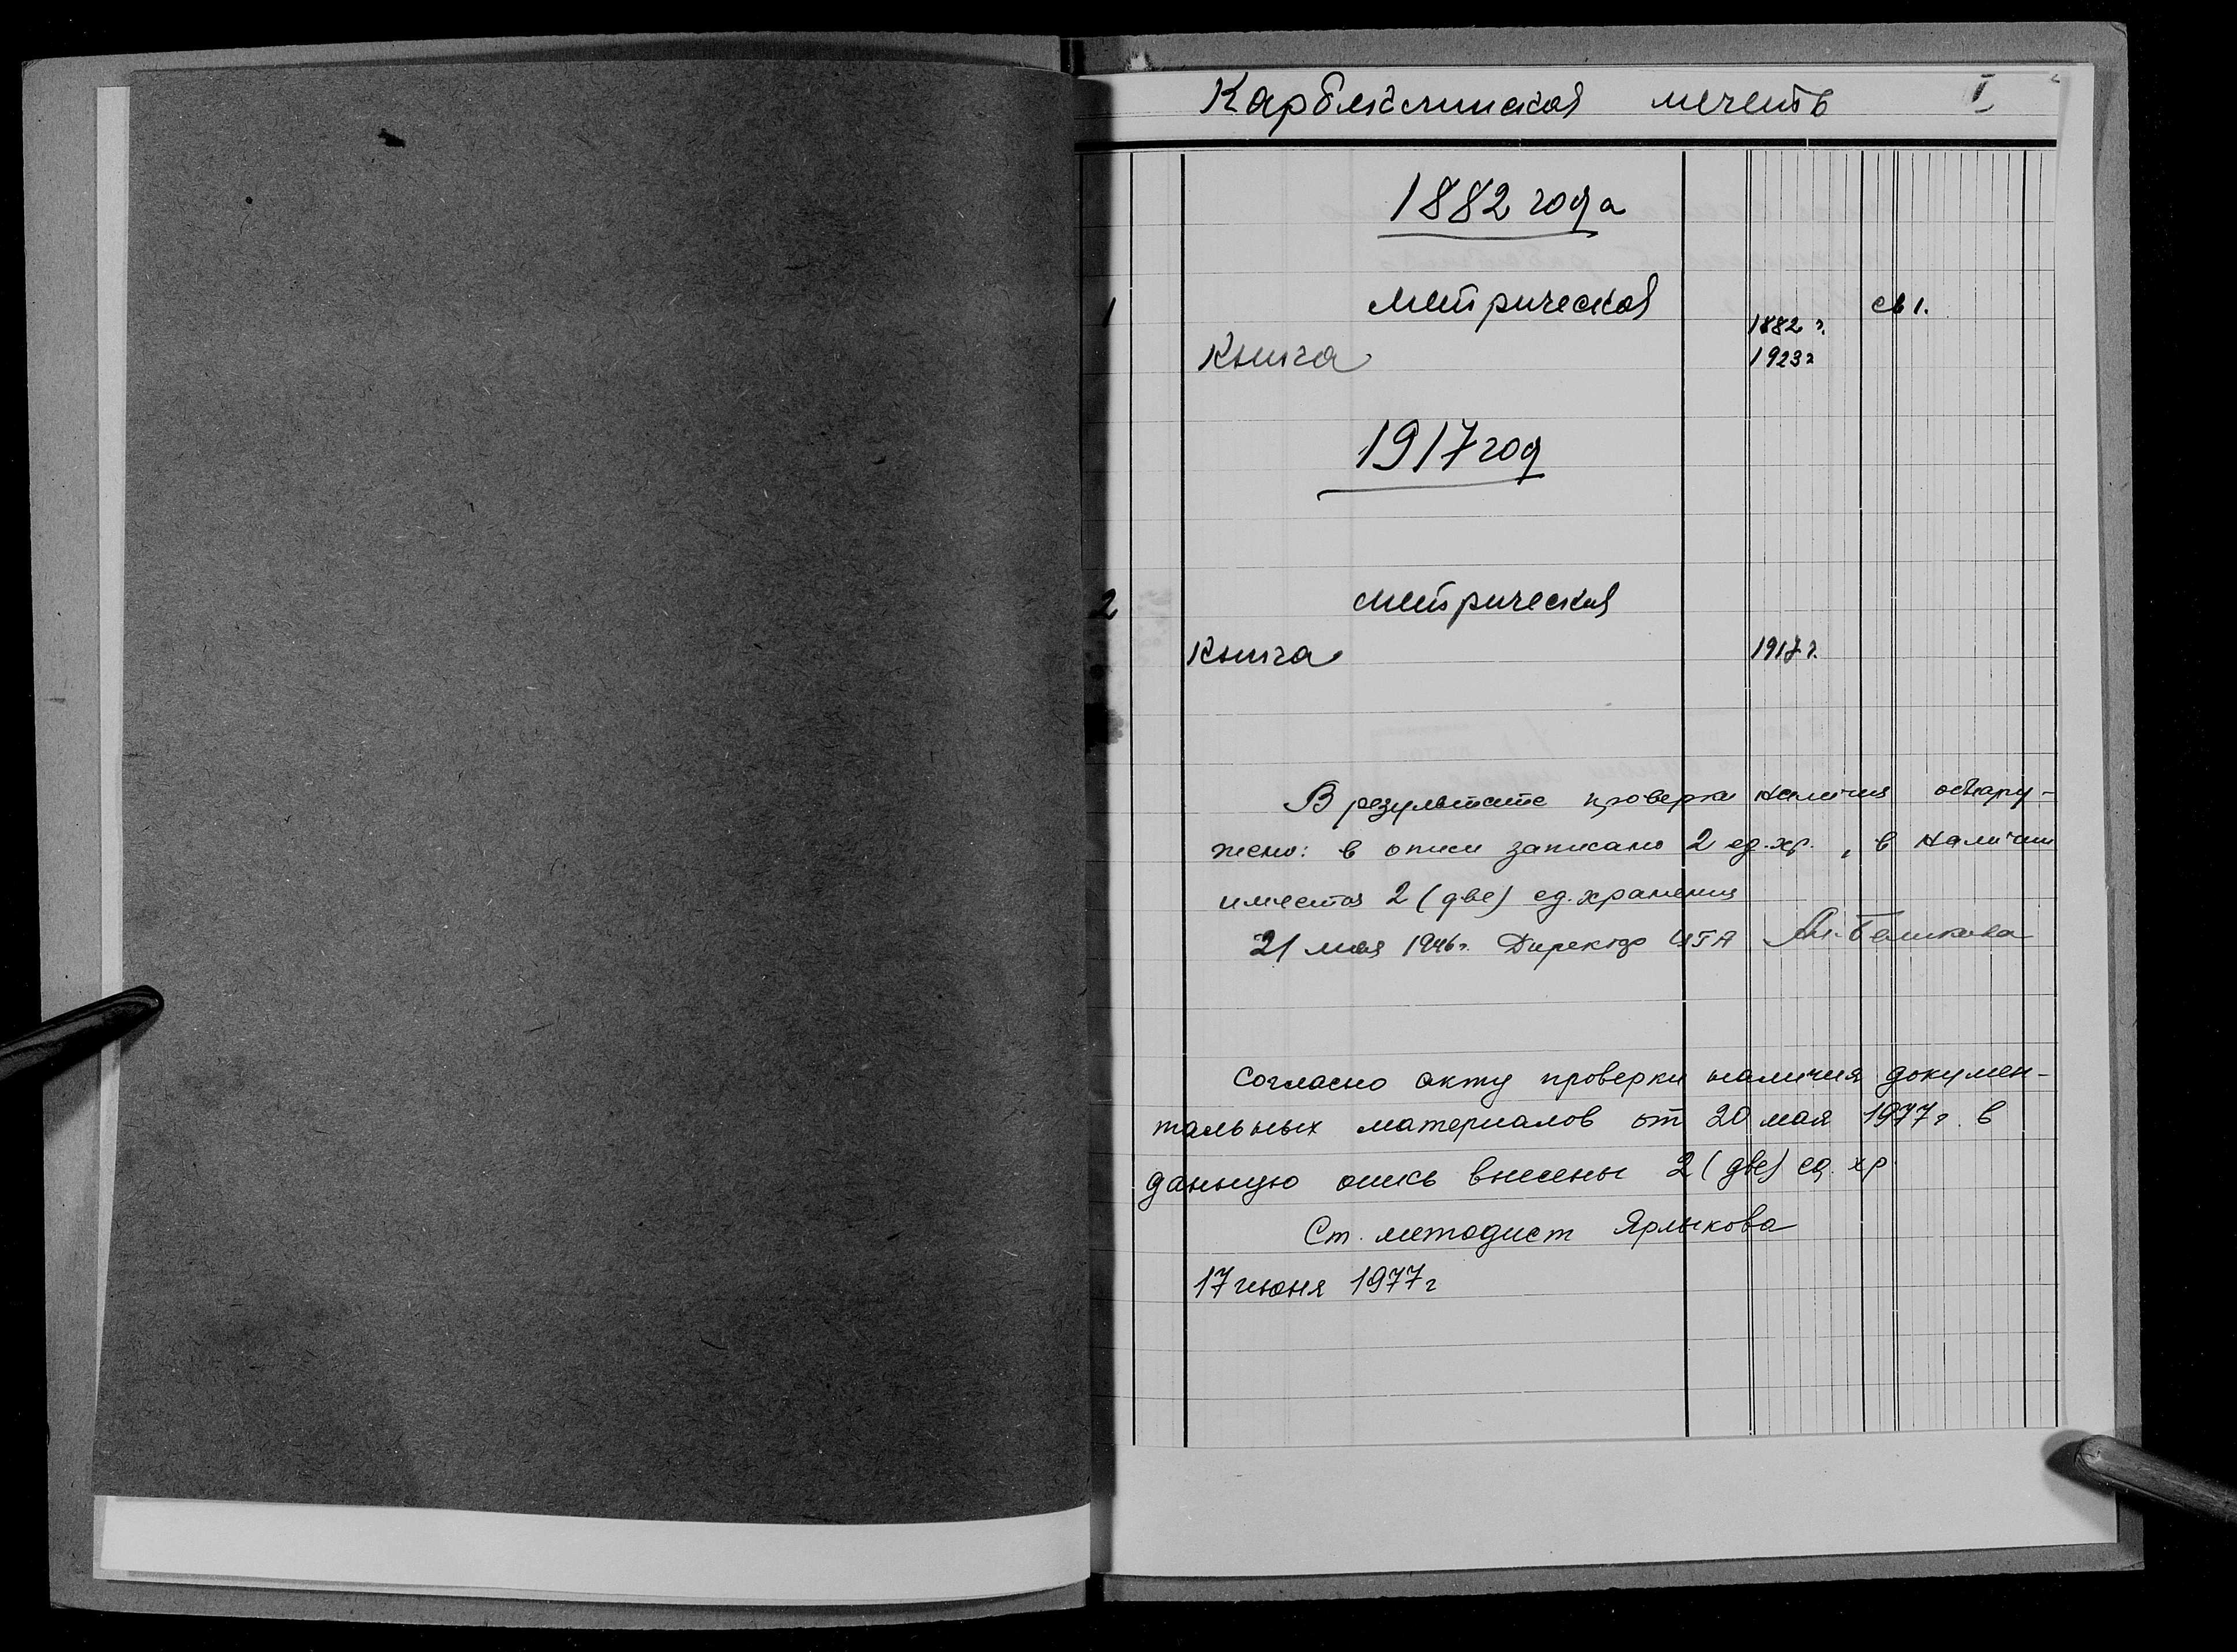 мечеть I
1882 года
1 метрическая св 1.
1882 г.
Книга 1923 г
1917 год
2 метрическая
Книга 1917 г.
В результате проверки наличия обнару-
жено: в описи записано 2 ед. хр., в наличии
имеется 2 (две) ед. хранения
21 мая 1946 г. Директор ЦГА
Согласно акту проверки наличия докумен-
тальных материалов от 20 мая 1977 г. в
данную опись внесены 2 (две) ед. хр.
Ст. методист Ярлыкова
17 июня 1977 г